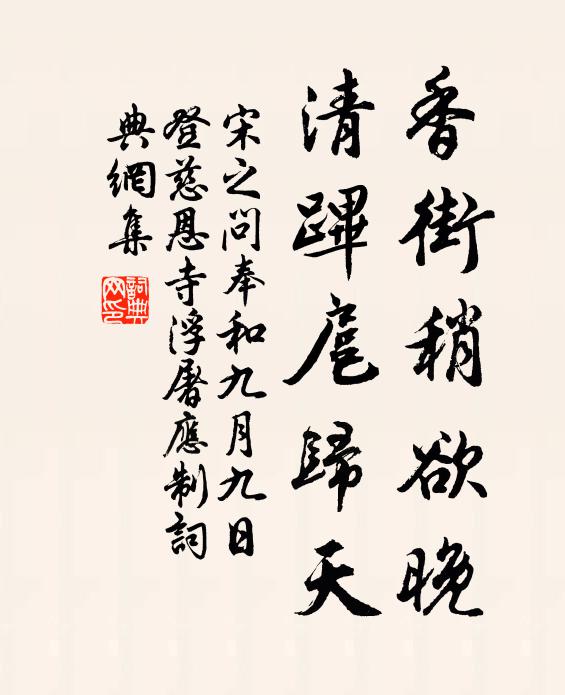 香街稍欲晚
清蹕扈歸天
宋之問奉和九月九日
登慈恩寺浮屠應制詞
典網集
詞典
网印